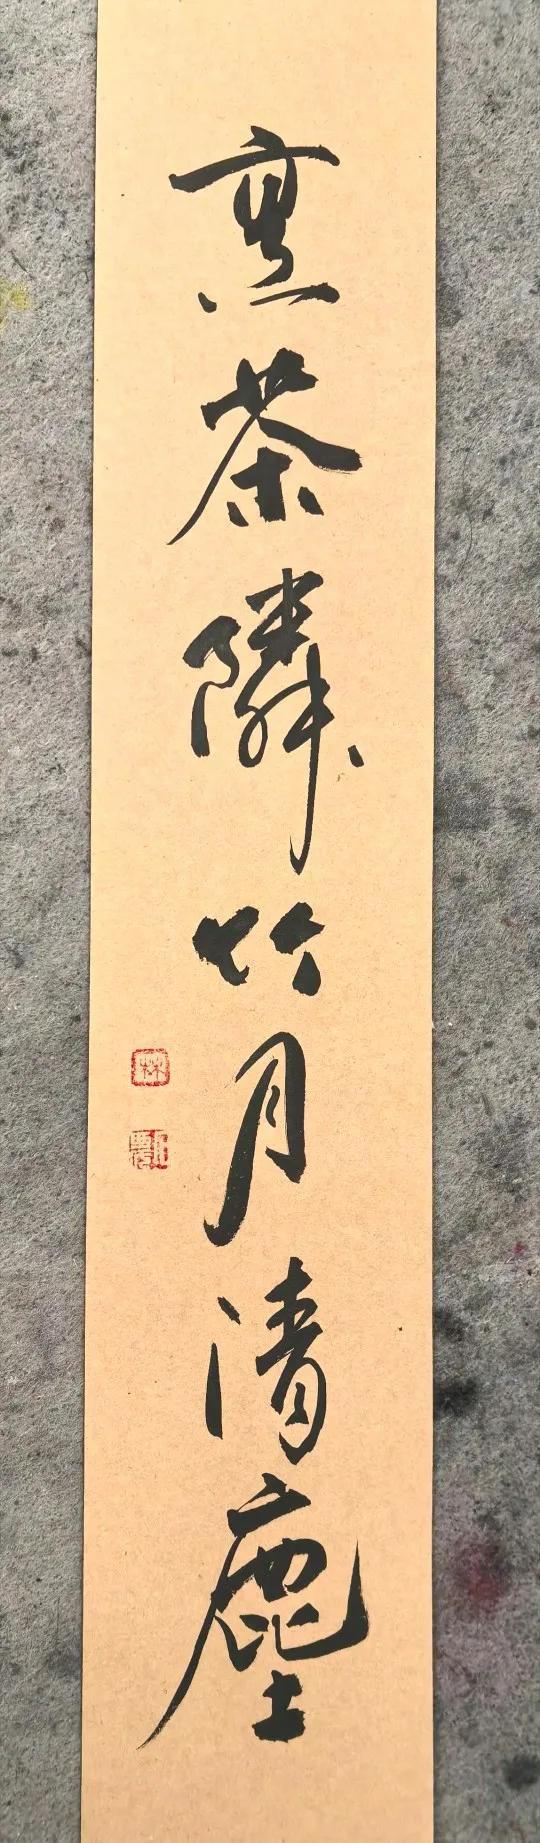 烹茶隣竹月清塵
林